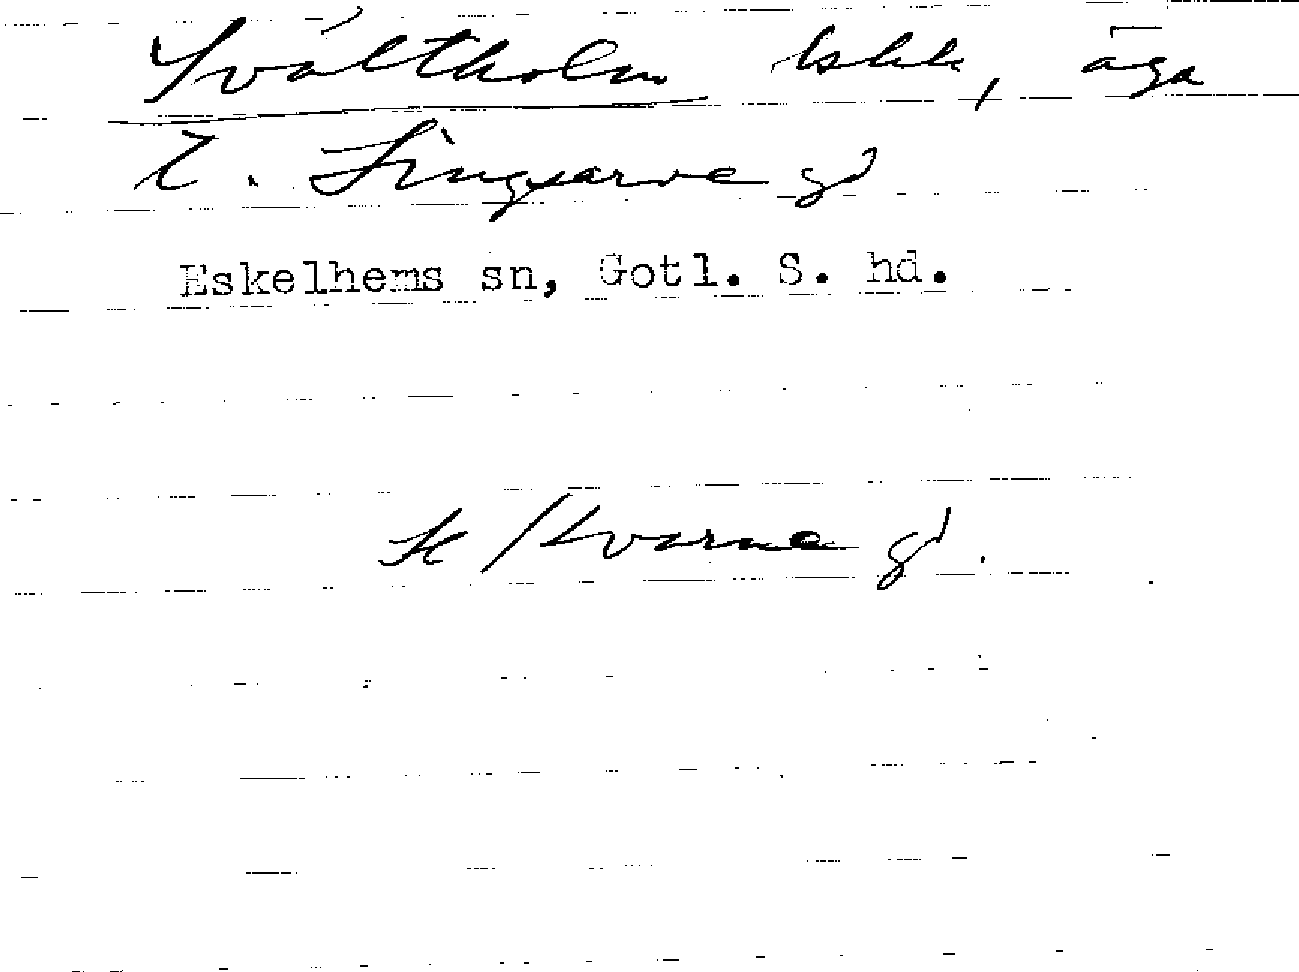 Svältholm bskk, äga
t. Singsarve gd
Eskelhems sn, Gotl. S. hd.
St Kvarne gd.